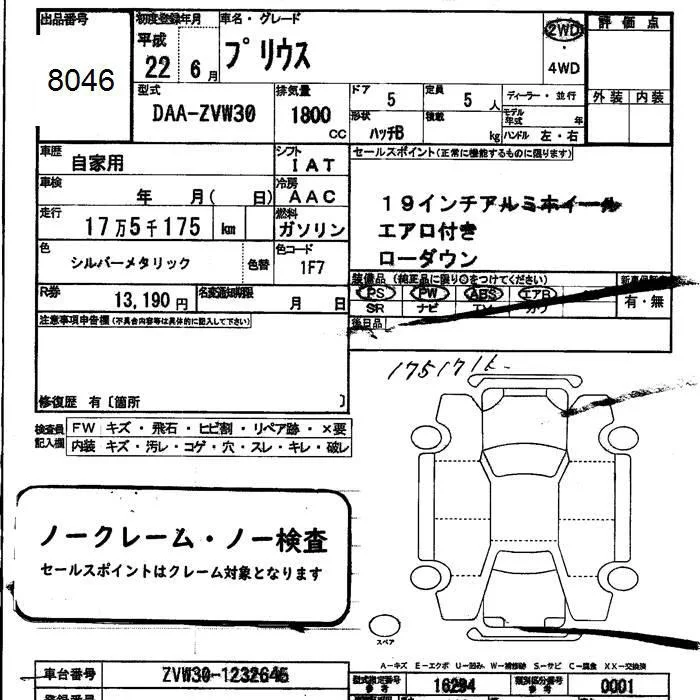 出品番号 初度登録年月 車名・グレード 評価点
8046 平成22年6月 プリウス 2WD・4WD
外装 内装
型式 排気量 ドア 定員 ディーラー・並行
DAA-ZVW30 1800CC 5 5人 モデル年式 年
形状 積載 kg ハンドル 左・右
ハッチB
車歴 シフト セールスポイント(正常に機能するものに限ります)
自家用 IAT
車検 冷房
年 月( 日) AAC 19インチアルミホイール
走行 燃料 エアロ付き
17万5千175 km ガソリン ローダウン
色 色コード
シルバーメタリック 色替 1F7
装備品 (純正品に限り○をつけてください)
R券 名変通知期限 PS PW ABS エアB 有・無
13,190円 月 日 SR ナビ
注意事項申告欄(不具合内容等は具体的に記入して下さい) 後日品
修復歴 有〔箇所 〕
検査員記入欄
FW キズ・飛石・ヒビ割・リペア跡・×要
内装 キズ・汚レ・コゲ・穴・スレ・キレ・破レ
ノークレーム・ノー検査
セールスポイントはクレーム対象となります
スペア
A-キズ E-エクボ U-凹み W-補修跡 S-サビ C-腐食 XX-交換済
車台番号 ZVW30-1232645 型式指定番号 参考 16294 類別区分番号 参考 0001